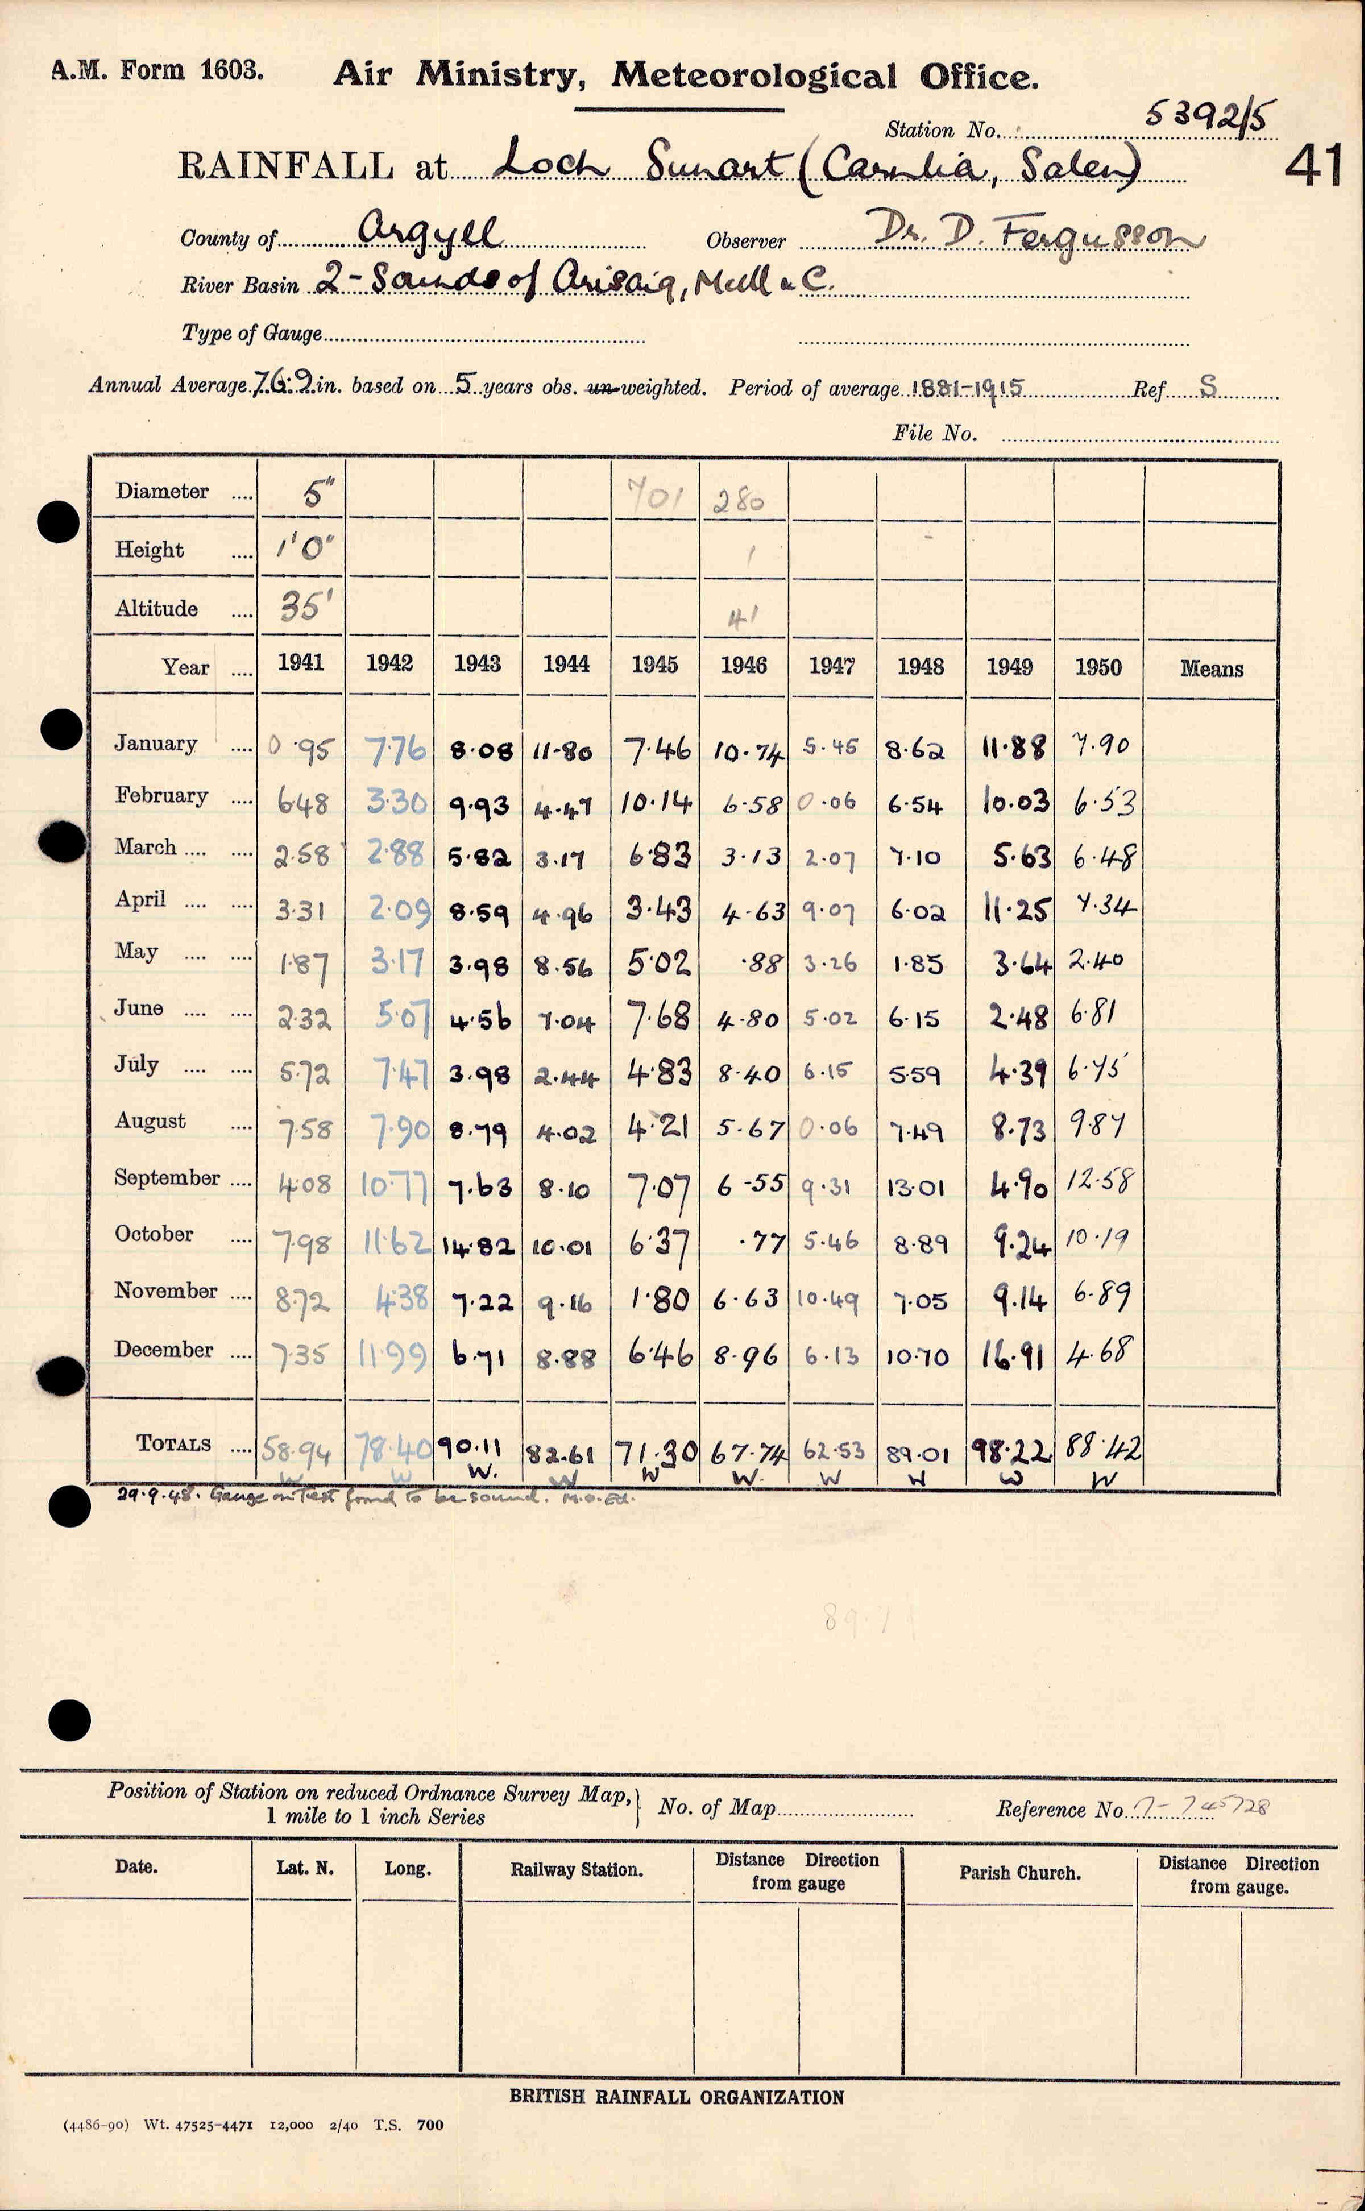 A.M. Form 1603. Air Ministry, Meteorological Office.
Station No. 5392/5
41
RAINFALL at Loch Sunart (Carnlia, Salen)
County of Argyll Observer Dr. D. Fergusson
River Basin 2-Sounds of Arisaig, Mull & C.
Type of Gauge
Annual Average 76.9 in. based on 5 years obs. un-weighted. Period of average 1881-1915 Ref S
File No.
Diameter 5" 701 280
Height 1'0" 1
Altitude 35' 41
Year 1941 1942 1943 1944 1945 1946 1947 1948 1949 1950 Means
January 0.95 7.76 8.08 11.80 7.46 10.74 5.45 8.62 11.88 7.90
February 6.48 3.30 9.93 4.47 10.14 6.58 0.06 6.54 10.03 6.53
March 2.58 2.88 5.82 3.17 6.83 3.13 2.07 7.10 5.63 6.48
April 3.31 2.09 8.59 4.96 3.43 4.63 9.07 6.02 11.25 7.34
May 1.87 3.17 3.98 8.56 5.02 .88 3.26 1.85 3.64 2.40
June 2.32 5.07 4.56 7.04 7.68 4.80 5.02 6.15 2.48 6.81
July 5.72 7.47 3.98 2.44 4.83 8.40 6.15 5.59 4.39 6.75
August 7.58 7.90 8.79 4.02 4.21 5.67 0.06 7.49 8.73 9.87
September 4.08 10.77 7.63 8.10 7.07 6.55 9.31 13.01 4.90 12.58
October 7.98 11.62 14.82 10.01 6.37 .77 5.46 8.89 9.24 10.19
November 8.72 4.38 7.22 9.16 1.80 6.63 10.49 7.05 9.14 6.89
December 7.35 11.99 6.71 8.88 6.46 8.96 6.13 10.70 16.91 4.68
TOTALS 58.94 78.40 90.11 82.61 71.30 67.74 62.53 89.01 98.22 88.42
W W W. W W W. W W W W
29.9.48. Gauge on Test found to be sound. M.O.Ed.
Position of Station on reduced Ordnance Survey Map,
1 mile to 1 inch Series
No. of Map Reference No. 745728
Date. Lat. N. Long. Railway Station. Distance Direction from gauge Parish Church. Distance Direction from gauge.
BRITISH RAINFALL ORGANIZATION
(4486-90) Wt. 47525-4471 12,000 2/40 T.S. 700